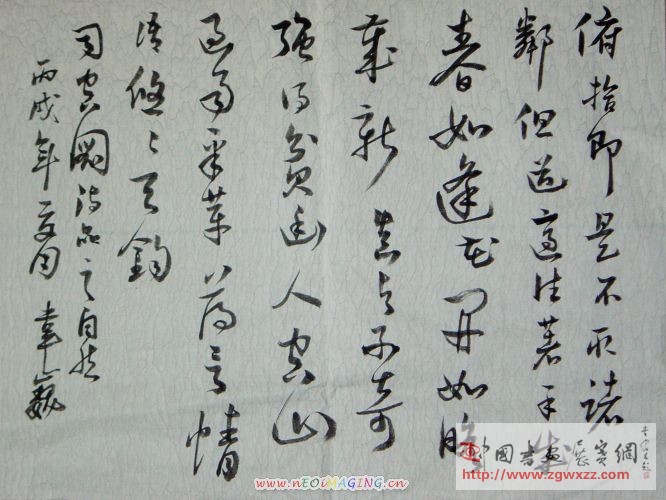 俯拾即是不取諸
鄰但道適往著手成
春如逢花開如瞻
歲新真与不奇
強得貧幽人空山
過雨采苹薄言情
悟悠々天鈞
司空圖詩品之自然
丙戌年夏月 韋巍
國書畫展寶網
www.zgwxzz.com
www.nEOiMAGiNG.cn